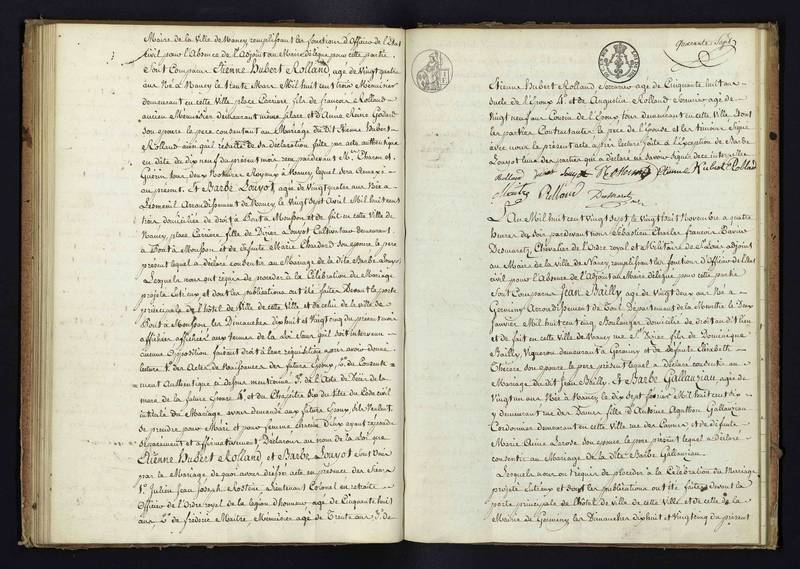 Maire de la Ville de Nancy remplissant les fonctions d'Officier de l'État
Civil pour l'absence de l'Adjoint au Maire délégué pour cette partie
Sont Comparus Etienne Hubert Rolland, agé de Vingt quatre
ans Né à Nancy le trente Mars Mil huit cent trois Menuisier
demeurant en cette Ville place Carriere, fils de francois Rolland
ancien Menuisier demeurant même place et d'Anne Rose Godard
son epouse le pere consentant au Mariage du dit Etienne Hubert
Rolland ainsi qu'il resulte de sa déclaration faite par acte authentique
en date du dix neuf du présent mois reçu pardevant Mes Charon et
Guérin tous deux Notaires Royaux à Nancy lequel sera Annexé
au présent. Et Barbe Louyot, agée de Vingt quatre ans Née à
Arrondissement de Nancy, le Vingt sept Avril Mil huit cent
trois, domiciliée de droit à Pont à Mousson et de fait en cette Ville de
Nancy, place Carriere, fille de Louyot Cultivateur demeurant
à Pont à Mousson et de défunte Marie Chardard son epouse le pere
présent lequel a déclaré consentir au Mariage de la dite Barbe Louyot
Lesquels nous ont requis de procéder à la Célébration du Mariage
projeté entr'eux et dont les publications ont été faites Devant la porte
principale de l'hôtel de Ville de cette Ville et de celui de la ville de
Pont à Mousson les Dimanches dixhuit et Vingt cinq du présent mois
affiches affichées aux termes de la loi sans qu'il soit intervenu
aucune Opposition faisant droit à leur réquisition après avoir donné
lecture 1° des Actes de Naissances des futurs Epoux, 2° du Consente
ment Authentique ci dessus mentionné 3° de l'Acte de Décès de la
mere de la future Epouse 4° et du Chapitre six du titre du Code civil
intitulé du Mariage avons demandé aux futurs Epoux s'ils Veulent
se prendre pour Mari et pour femme chacun d'eux ayant répondu
séparément et affirmativement Déclarons au nom de la loi que
Etienne Hubert Rolland et Barbe Louyot sont Unis
par le Mariage de quoi avons dressé acte en présence des Sieurs
1° Julien Jean Joseph Lieutenant Colonel en retraite
Officier de l'Ordre royal de la légion d'honneur agé de Cinquante huit
ans 2° de frédéric Maitre, Menuisier agé de Trente ans 3° de
Quarante Sept
Etienne Hubert Rolland Serrurier agé de Cinquante huit ans
Oncle de l'Epoux 4° et de Augustin Rolland Serrurier agé de
Vingt neuf ans Cousin de l'Epoux tous demeurant en cette Ville Et ont
les parties Contractantes le pere de l'Epouse et les témoins Signé
avec nous le présent acte après lecture faite à l'Exception de Barbe
Louyot l'une des parties qui a Déclaré ne savoir Signer de ce interpellée
Rolland Louyot Etienne Hubert Rolland
Maitre Rolland Desmaretz
L'An Mil huit cent Vingt sept le Vingt huit Novembre à quatre
heures du soir pardevant nous Sébastien Charles francois Xavier
Desmaretz, Chevalier de l'Ordre royal et Militaire de St Louis adjoint
au Maire de la Ville de Nancy remplissant les fonctions d'Officier de l'État
civil pour l'Absence de l'Adjoint au Maire délégué pour cette partie
Sont Comparus Jean Bailly, agé de Vingt deux ans Né à
Germiny Arrondissement de Toul Département de la Meurthe le Deux
Janvier Mil huit cent cinq Boulanger domicilié de droit au dit lieu
et de fait en cette Ville de Nancy rue St Dizier fils de Dominique
Bailly, Vigneron demeurant à Germiny et de défunte Elisabeth
son epouse le pere présent lequel a déclaré consentir au
Mariage du dit Jean Bailly. Et Barbe Gallauziau, agée de
Vingt un ans Née à Nancy le dix sept Mil huit cent six
y demeurant rue des Dames fille d'Antoine Agathon Gallauziau
Cordonnier demeurant en cette Ville rue des et de défunte
Marie Anne Larose son epouse le pere présent lequel a déclaré
consentir au Mariage de la dite Barbe Gallauziau.
Lesquels nous ont requis de procéder à la Célébration du Mariage
projeté entr'eux et dont les publications ont été faites devant la
porte principale de l'hôtel de Ville de cette Ville et de celle de la
Mairie de Germiny les Dimanches dixhuit et Vingtcinq du présent